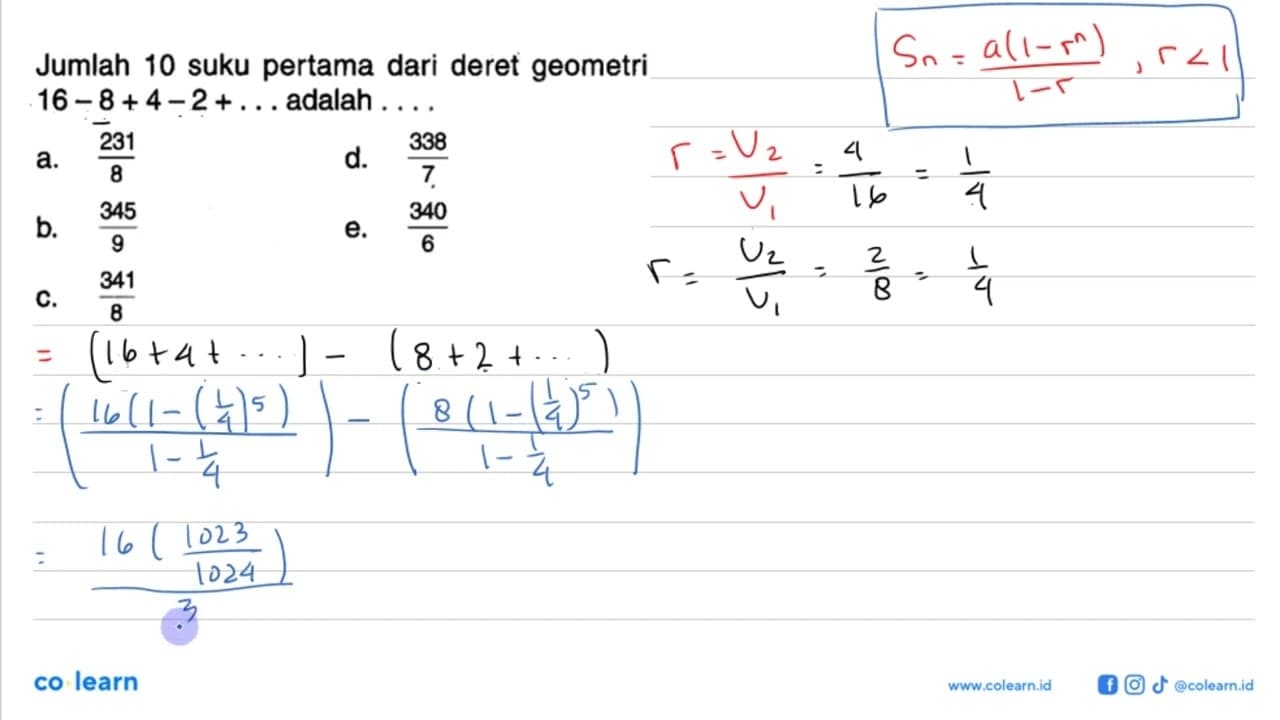 Jumlah 10 suku pertama dari deret geometri
16 – 8 + 4 – 2 + . . . adalah . . . .
a. 231/8
b. 345/9
c. 341/8
d. 338/7
e. 340/6
Sn = a(1-rⁿ)/1-r , r < 1
r = U₂/U₁ = 4/16 = 1/4
r = U₂/U₁ = 2/8 = 1/4
= (16 + 4 + ....) - (8 + 2 + ...)
= (16(1-(1/4)⁵)/1-1/4) - (8(1-(1/4)⁵)/1-1/4)
= 16(1023/1024)/3
co learn
www.colearn.id
@colearn.id